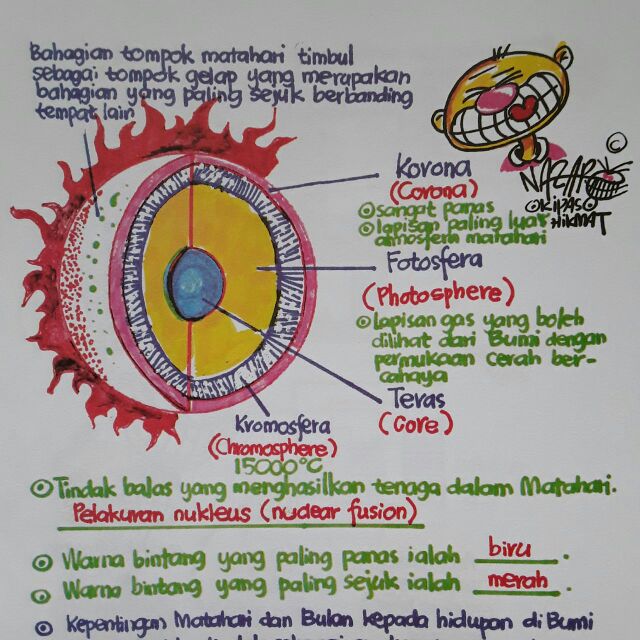 Bahagian tompok matahari timbul
sebagai tompok gelap yang merupakan
bahagian yang paling sejuk berbanding
tempat lain
©
NAZAR
OKIPASO
HIKMAT
Korona
(Corona)
sangat panas
lapisan paling luar
atmosfera matahari
Fotosfera
(Photosphere)
lapisan gas yang boleh
dilihat dari Bumi dengan
permukaan cerah ber-
cahaya
Teras
(Core)
Kromosfera
(Chromosphere)
15000°C
Tindak balas yang menghasilkan tenaga dalam Matahari.
Pelakuran nukleus (nuclear fusion)
Warna bintang yang paling panas ialah biru.
Warna bintang yang paling sejuk ialah merah.
Kepentingan Matahari dan Bulan kepada hidupan di Bumi